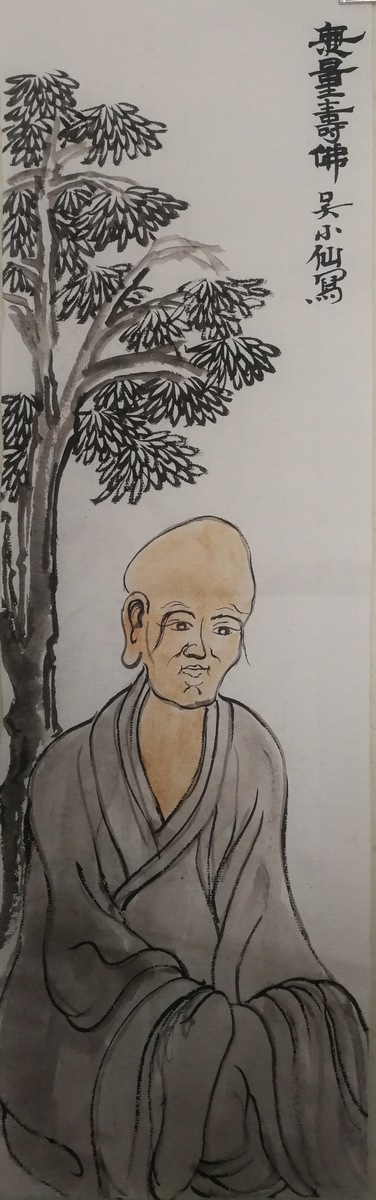 無量壽佛 吴小仙寫